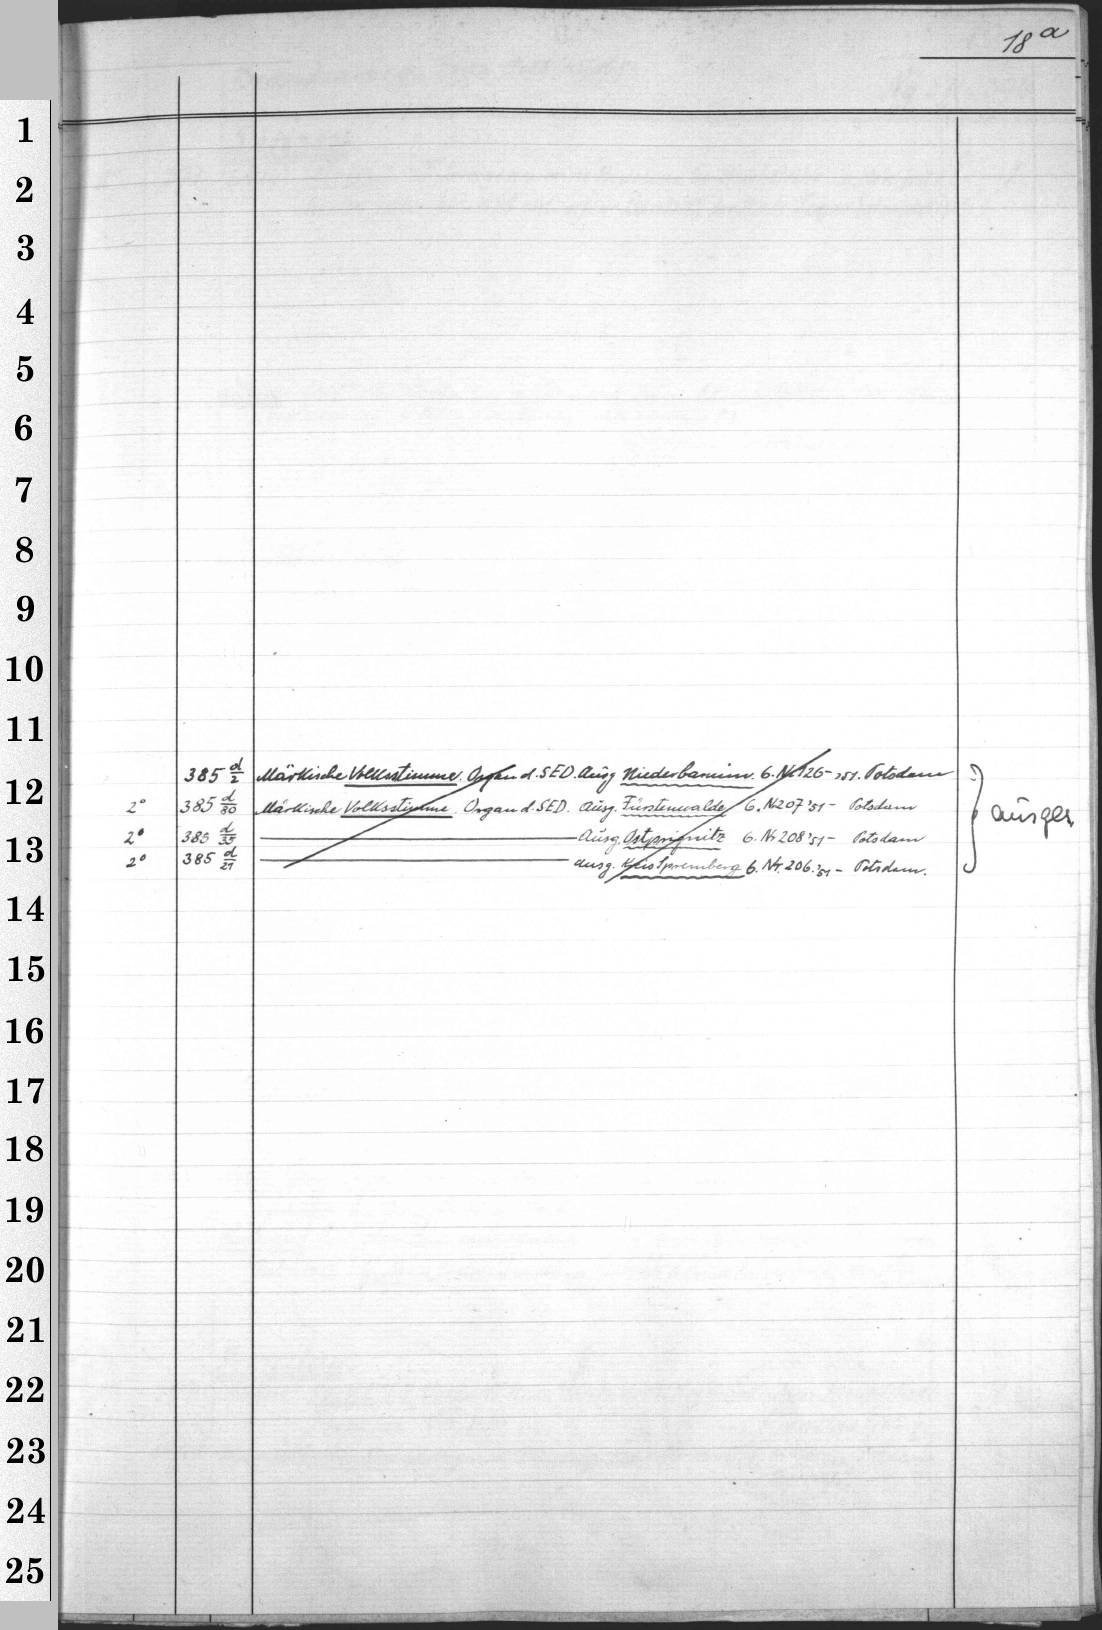 18 a
1
2
3
4
5
6
7
8
9
10
11
12
13
14
15
16
17
18
19
20
21
22
23
24
25
385 d/2 Märkische Volksstimme. Organ d. SED. Ausg Niederbarnim. 6. Nr 126- '51. Potsdam
2° 385 d/30 Märkische Volksstimme. Organ d. SED. Ausg. Fürstenwalde 6. Nr 207 '51 - Potsdam
2° 385 d/35 Ausg. Ostprignitz 6. Nr 208 '51 - Potsdam
2° 385 d/21 Ausg. Kreis Spremberg 6. Nr. 206. '51 - Potsdam.
ausges